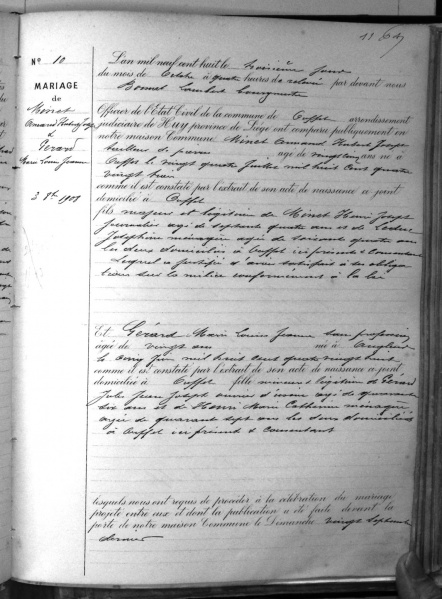 N° 10
MARIAGE
de
Minet
Armand Hubert Joseph
&
Gérard
Marie Louise Jeanne
3 8bre 1908
L'an mil neuf cent huit le troisième jour
du mois de Octobre à quatre heures de relevée par devant nous
Bonnet Lambert
Officier de l'État Civil de la commune de Ouffet arrondissement
judiciaire de Huy province de Liége ont comparu publiquement en
notre maison Commune Minet Armand Hubert Joseph
tailleur de pierres âgé de vingt ans né à
Ouffet le vingt quatre Juillet mil huit cent quatre
vingt huit
comme il est constaté par l'extrait de son acte de naissance ci joint
domicilié à Ouffet
fils majeur et légitime de Minet Henri Joseph
journalier âgé de septante quatre ans et de
Joséphine ménagère âgée de soixante quatre ans
les deux domiciliés à Ouffet ici présents & consentant
Lequel a justifié d'avoir satisfait à ses obliga
tions sur la milice conformément à la loi
Et Gérard Marie Louise Jeanne sans profession
âgée de vingt ans née à
le cinq Juin mil huit cent quatre vingt huit
comme il est constaté par l'extrait de son acte de naissance ci joint
domiciliée à Ouffet fille mineure & légitime de Gérard
Jules Jean Joseph ouvrier d'usine âgé de quarante
six ans et de Henri Marie Catherine ménagère
âgée de quarante sept ans les deux domiciliés
à Ouffet ici présents & consentant
lesquels nous ont requis de procéder à la célébration du mariage
projeté entre eux et dont la publication a été faite devant la
porte de notre maison Commune le Dimanche vingt septembre
dernier